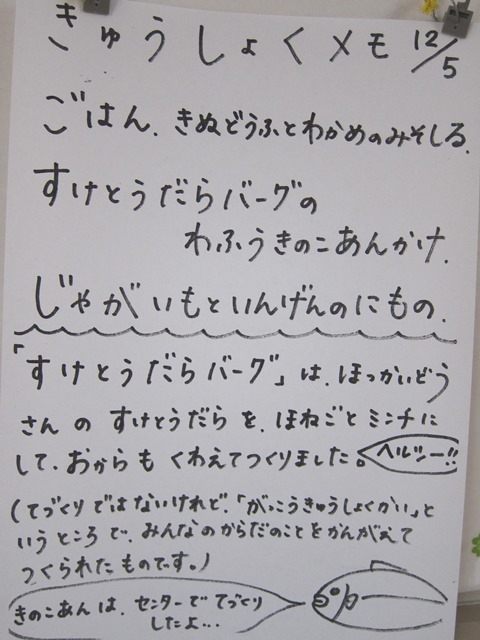 きゅうしょくメモ 12/5
ごはん. きぬどうふとわかめのみそしる.
すけとうだらバーグの
わふうきのこあんかけ.
じゃがいもといんげんのにもの.
「すけとうだらバーグ」は. ほっかいどう
さんのすけとうだらを. ほねごとミンチに
して. おからもくわえてつくりました。 ヘルシー!!
(てづくりではないけれど. 「がっこうきゅうしょくかい」と
いうところで. みんなのからだのことをかんがえて
つくられたものです。)
きのこあんは. センターでてづくり
したよ…